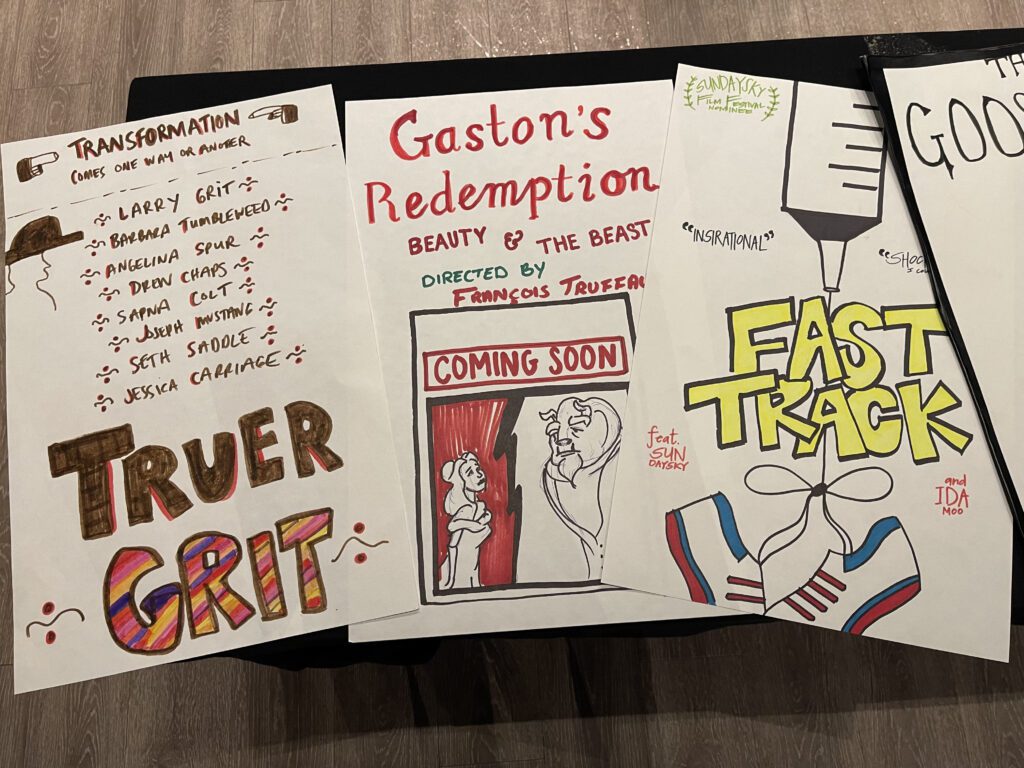 TRANSFORMATION
COMES ONE WAY OR ANOTHER
LARRY GRIT
BARBARA TUMBLEWEED
ANGELINA SPUR
DREW CHAPS
SAPNA COLT
JOSEPH MUSTANG
SETH SADDLE
JESSICA CARRIAGE
TRUER
GRIT
Gaston's
Redemption
BEAUTY & THE BEAST
DIRECTED BY
FRANÇOIS
COMING SOON
SUNDAYSKY
FILM FESTIVAL
NOMINEE
"INSIRATIONAL"
FAST
TRACK
feat.
SUN
DAYSKY
and
IDA
MOO